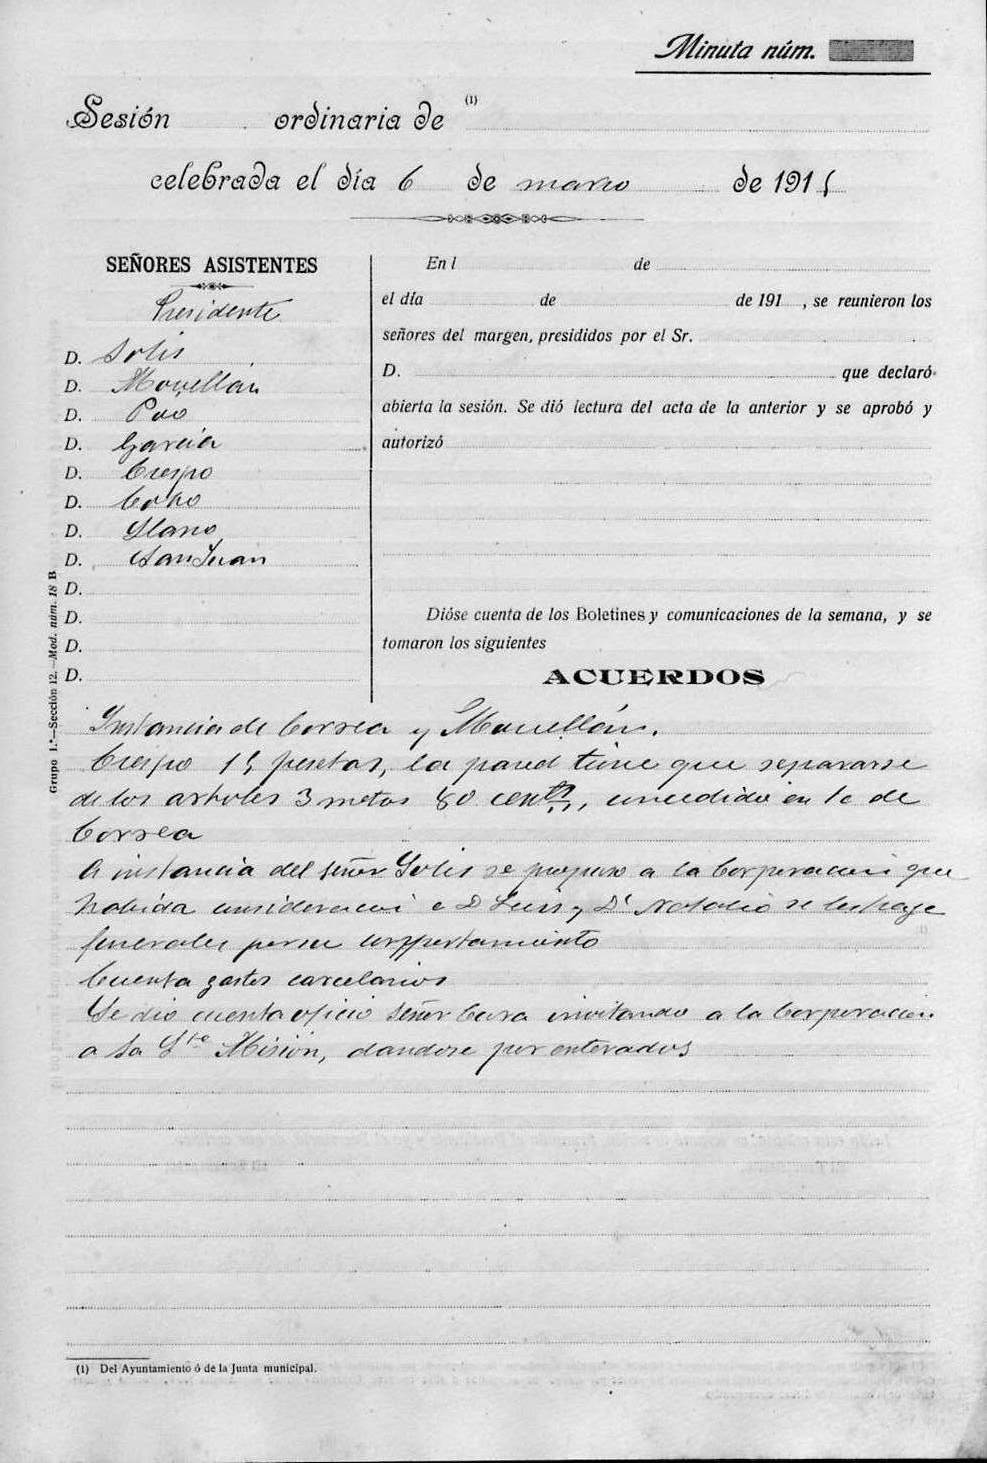 Minuta núm.
Sesión ordinaria de (1)
celebrada el día 6 de marzo de 1915
SEÑORES ASISTENTES
Presidente
D. Solis
D. Movellan
D. Poo
D. Garcia
D. Crespo
D. Cobo
D. Llano
D. San Juan
D.
D.
D.
D.
En l de
el día de de 191 , se reunieron los
señores del margen, presididos por el Sr.
D. que declaró
abierta la sesión. Se dió lectura del acta de la anterior y se aprobó y
autorizó
Dióse cuenta de los Boletines y comunicaciones de la semana, y se
tomaron los siguientes
ACUERDOS
Instancia de Correa y Movellán.
Crespo 15 pesetas, la pared tiene que separarse
de los arboles 3 metos 80 cents, concedido en lo de
Correa
A instancia del señor Solis se propuso a la Corporacion que
habida consideracion a D Luis y Dn Natalio se les haga
funerales por su comportamiento
Cuenta gastos carcelarios
Se dio cuenta oficio señor Cura invitando a la Corporacion
a la Sta Misión, dandose por enterados
Grupo 1.º—Sección 12.—Mod. núm. 18 B
(1) Del Ayuntamiento ó de la Junta municipal.